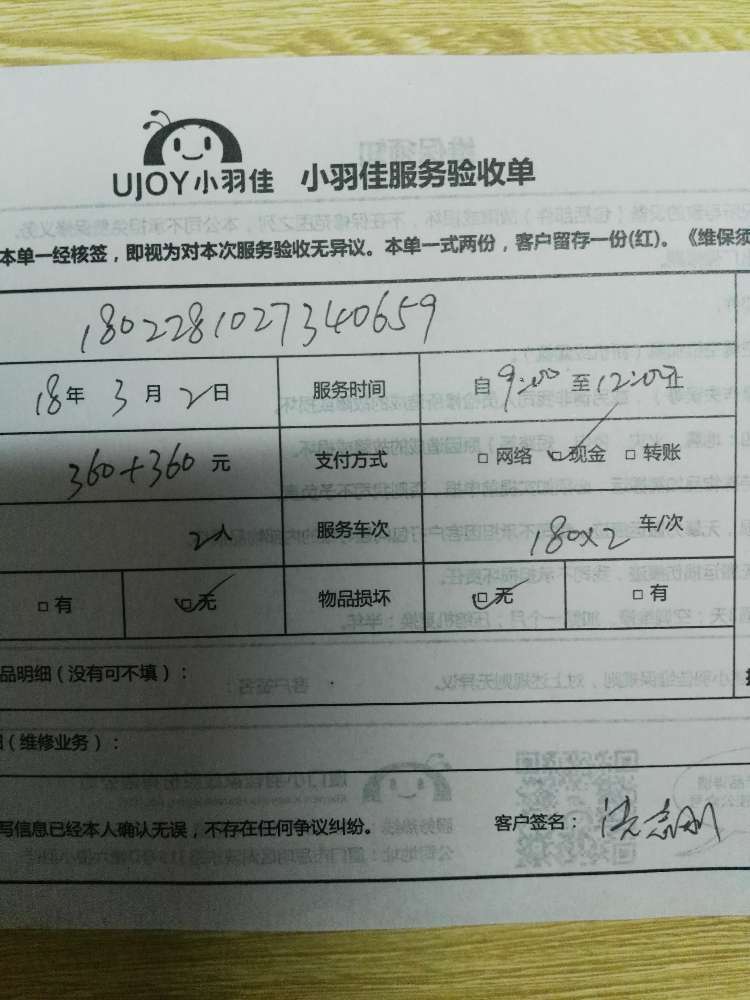 UJOY小羽佳 小羽佳服务验收单
本单一经核签，即视为对本次服务验收无异议。本单一式两份，客户留存一份(红)。《维保须
1802281027340659
18年 3月 2日 服务时间 自 9:00 至 12:00止
360+360 元 支付方式 □ 网络 ☑现金 □ 转账
2人 服务车次 180×2 车/次
□ 有 ☑无 物品损坏 ☑无 □ 有
品明细（没有可不填）：
（维修业务）：
写信息已经本人确认无误，不存在任何争议纠纷。 客户签名：